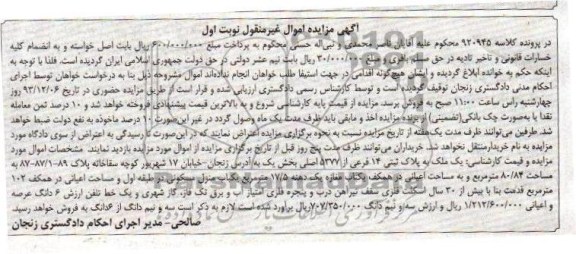 آگهی مزایده اموال غیرمنقول نوبت اول
در پرونده کلاسه ۹۲۰۹۴۵ محکوم علیه آقایان ناصر محمدی و نبی‌اله حسنی محکوم به پرداخت مبلغ ۶۰۰/۰۰۰/۰۰۰ ریال بابت اصل خواسته و به انضمام کلیه
خسارات قانونی و تاخیر تادیه در حق سلم باقری و مبلغ ۳۰/۰۰۰/۰۰۰ ریال بابت نیم عشر دولتی در حق دولت جمهوری اسلامی ایران گردیده است. فلذا با توجه به
اینکه حکم به خوانده ابلاغ گردیده و ایشان هیچگونه اقدامی در جهت استیفا طلب خواهان انجام نداده‌اند اموال مشروحه ذیل بنا به درخواست خواهان توسط اجرای
احکام مدنی دادگستری زنجان توقیف گردیده است و توسط کارشناس رسمی دادگستری ارزیابی شده و قرار است از طریق مزایده حضوری در تاریخ ۹۳/۱۲/۰۶ روز
چهارشنبه راس ساعت ۱۱:۰۰ صبح به فروش برسد. مزایده از قیمت پایه کارشناسی شروع و به بالاترین قیمت پیشنهادی فروخته خواهد شد و ۱۰ درصد ثمن معامله
نقدا یا بصورت چک بانکی(تضمینی) از برنده مزایده اخذ و مابقی باید ظرف مدت یک ماه وصول گردد در غیر این‌صورت ۱۰ درصد ماخوذه به نفع دولت ضبط خواهد
شد. طرفین می‌توانند ظرف مدت یک‌هفته از تاریخ مزایده نسبت به نحوه برگزاری مزایده اعتراض نمایند که در این‌صورت تا رسیدگی به اعتراض از سوی دادگاه مورد
مزایده به نام خریدار‌منتقل نخواهد شد. خریداران می‌توانند ظرف مدت پنج روز قبل از تاریخ برگزاری مزایده از اموال مورد مزایده بازدید نمایند. مشخصات اموال مورد
مزایده و قیمت کارشناسی: یک ملک به پلاک ثبتی ۱۴ فرعی از ۵۳۷۷ اصلی بخش یک به آدرس زنجان- خیابان ۱۷ شهریور کوچه سقاخانه پلاک ۸۹-۸۷/۱-۸۷ به
مساحت ۸۰/۸۴ مترمربع و به مساحت اعیانی در همکف یکباب مغازه یک دهنه ۱۷/۵ مترمربع یکباب منزل مسکونی در طبقه اول و مساحت اعیانی در همکف ۱۰۲
مترمربع قدمت بنا با بیش از ۳۰ سال اسکلت فلزی سقف تیرآهن درب و پنجره فلزی با امتیاز آب و برق تک فاز، گاز شهری و یک خط تلفن ارزش ۶ دانگ عرصه
و اعیانی ۱/۲۱۲/۶۰۰/۰۰۰ ریال و ارزش سه و نیم دانگ ۷۰۷/۳۵۰/۰۰۰ ریال برآورد شده است لازم به ذکر است سه و نیم دانگ از ۶دانگ به فروش خواهد رسید.
صالحی- مدیر اجرای احکام دادگستری زنجان